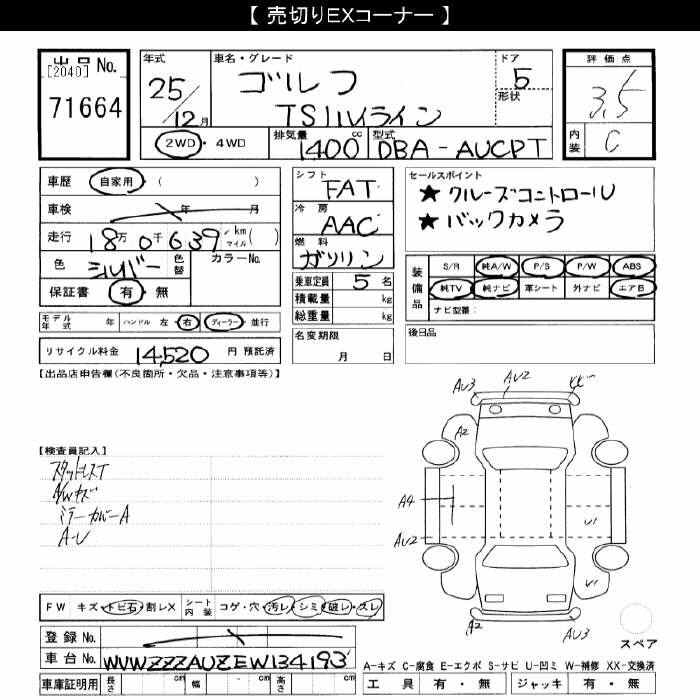 【 売切りEXコーナー 】
出品 No.
[2040]
71664
年式
25/12月
車名・グレード
ゴルフ
TSIIVライン
ドア
5
形状
評価点
3.5
内装
C
2WD・4WD
排気量
1400 cc
型式
DBA-AUCPT
車歴 自家用・( )
車検 年 月
走行 18万0千639 km マイル ( )
色 シルバー 色替 カラーNo.
保証書 有・無
モデル年式 年 ハンドル 左 右 ディーラー・並行
リサイクル料金 14,520 円 預託済
シフト
FAT
冷房
AAC
燃料
ガソリン
乗車定員 5 名
積載量 kg
総重量 kg
名変期限
月 日
セールスポイント
★ クルーズコントロール
★ バックカメラ
装備品
S/R 純A/W P/S P/W ABS
純TV 純ナビ 革シート 外ナビ エアB
ナビ型番:
後日品
【出品店申告欄(不良箇所・欠品・注意事項等)】
【検査員記入】
スタットレスT
A/Wキズ
ミラーカバーA
A-U
AU3
AU2
XX
A2
A4
AU2
U1
U1
A2
AU3
スペア
FW キズ・トビ石・割レX シート内装 コゲ・穴・汚レ・シミ・破レ・スレ
登録 No.
車台 No. WVWZZZAUZEW134193
車庫証明用 長さ cm 幅 cm 高さ cm
A-キズ C-腐食 E-エクボ S-サビ U-凹ミ W-補修 XX-交換済
工具 有・無 ジャッキ 有・無